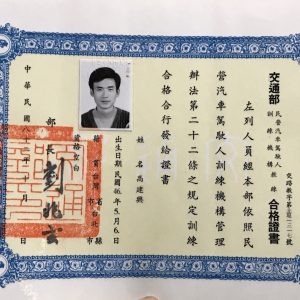 交通部
民營汽車駕駛人
訓練機構教練
合格證書
左列人員經本部依照民
營汽車駕駛人訓練機構管理
辦法第二十二條之規定訓練
合格合行發給證書
姓名 高建興
出生日期 民國46年5月6日
籍貫 台灣省台北市
資格
部長
中華民國八
年十月
日